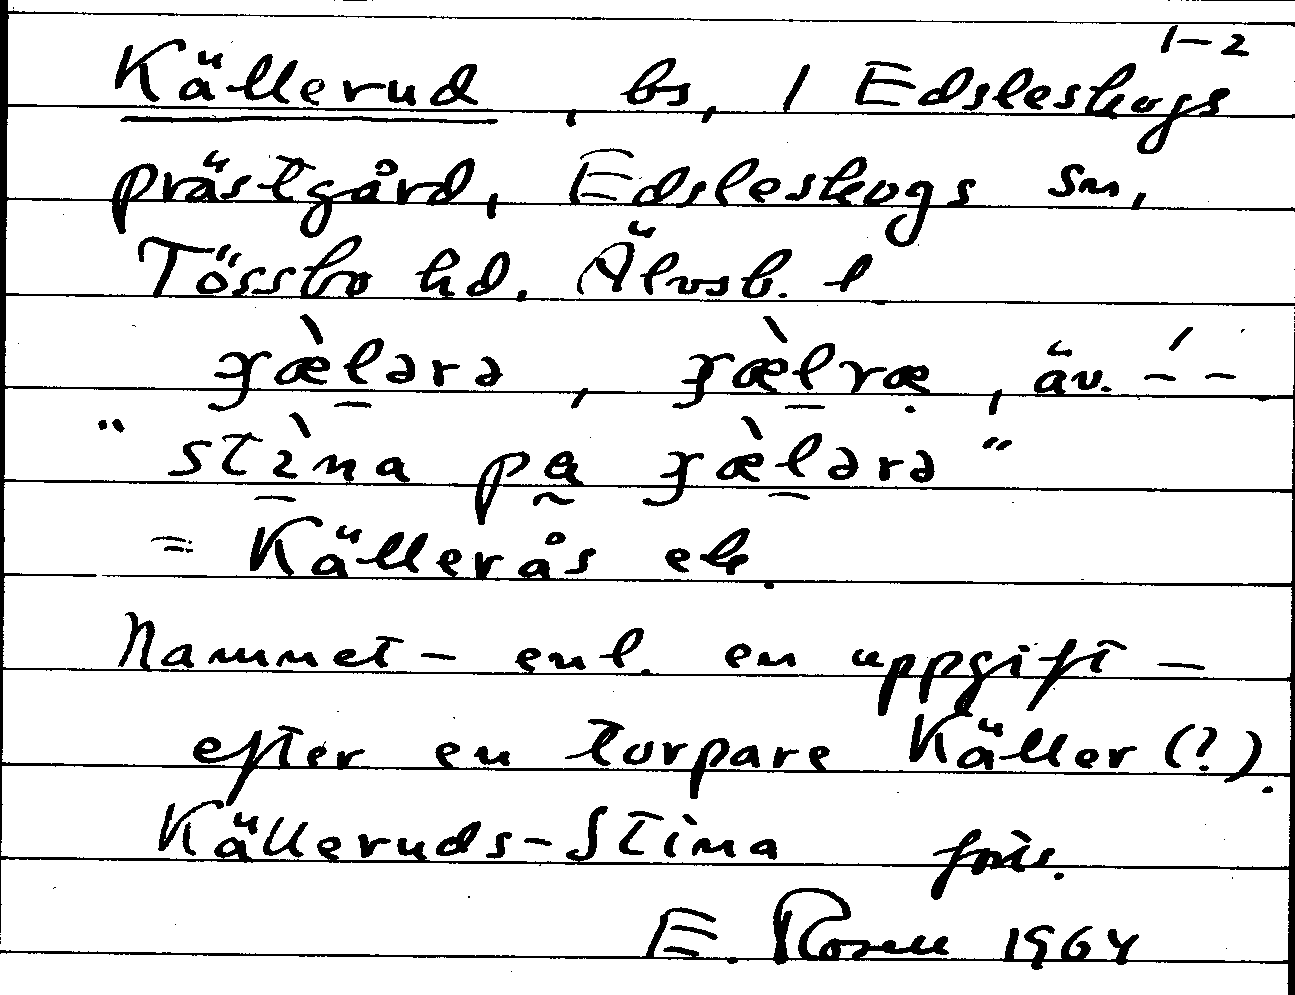 1-2
Källerud, bs, 1 Edsleskogs
prästgård, Edsleskogs sn,
Tössbo hd. Älvsb. l
ɟæ̀lərə, ɟæ̀lræ, äv. ---
"stìna pa ɟæ̀lərə"
= Källerås ek.
Namnet - enl. en uppgift -
efter en torpare Käller (?).
Källeruds-Stina
E. Rosell 1964